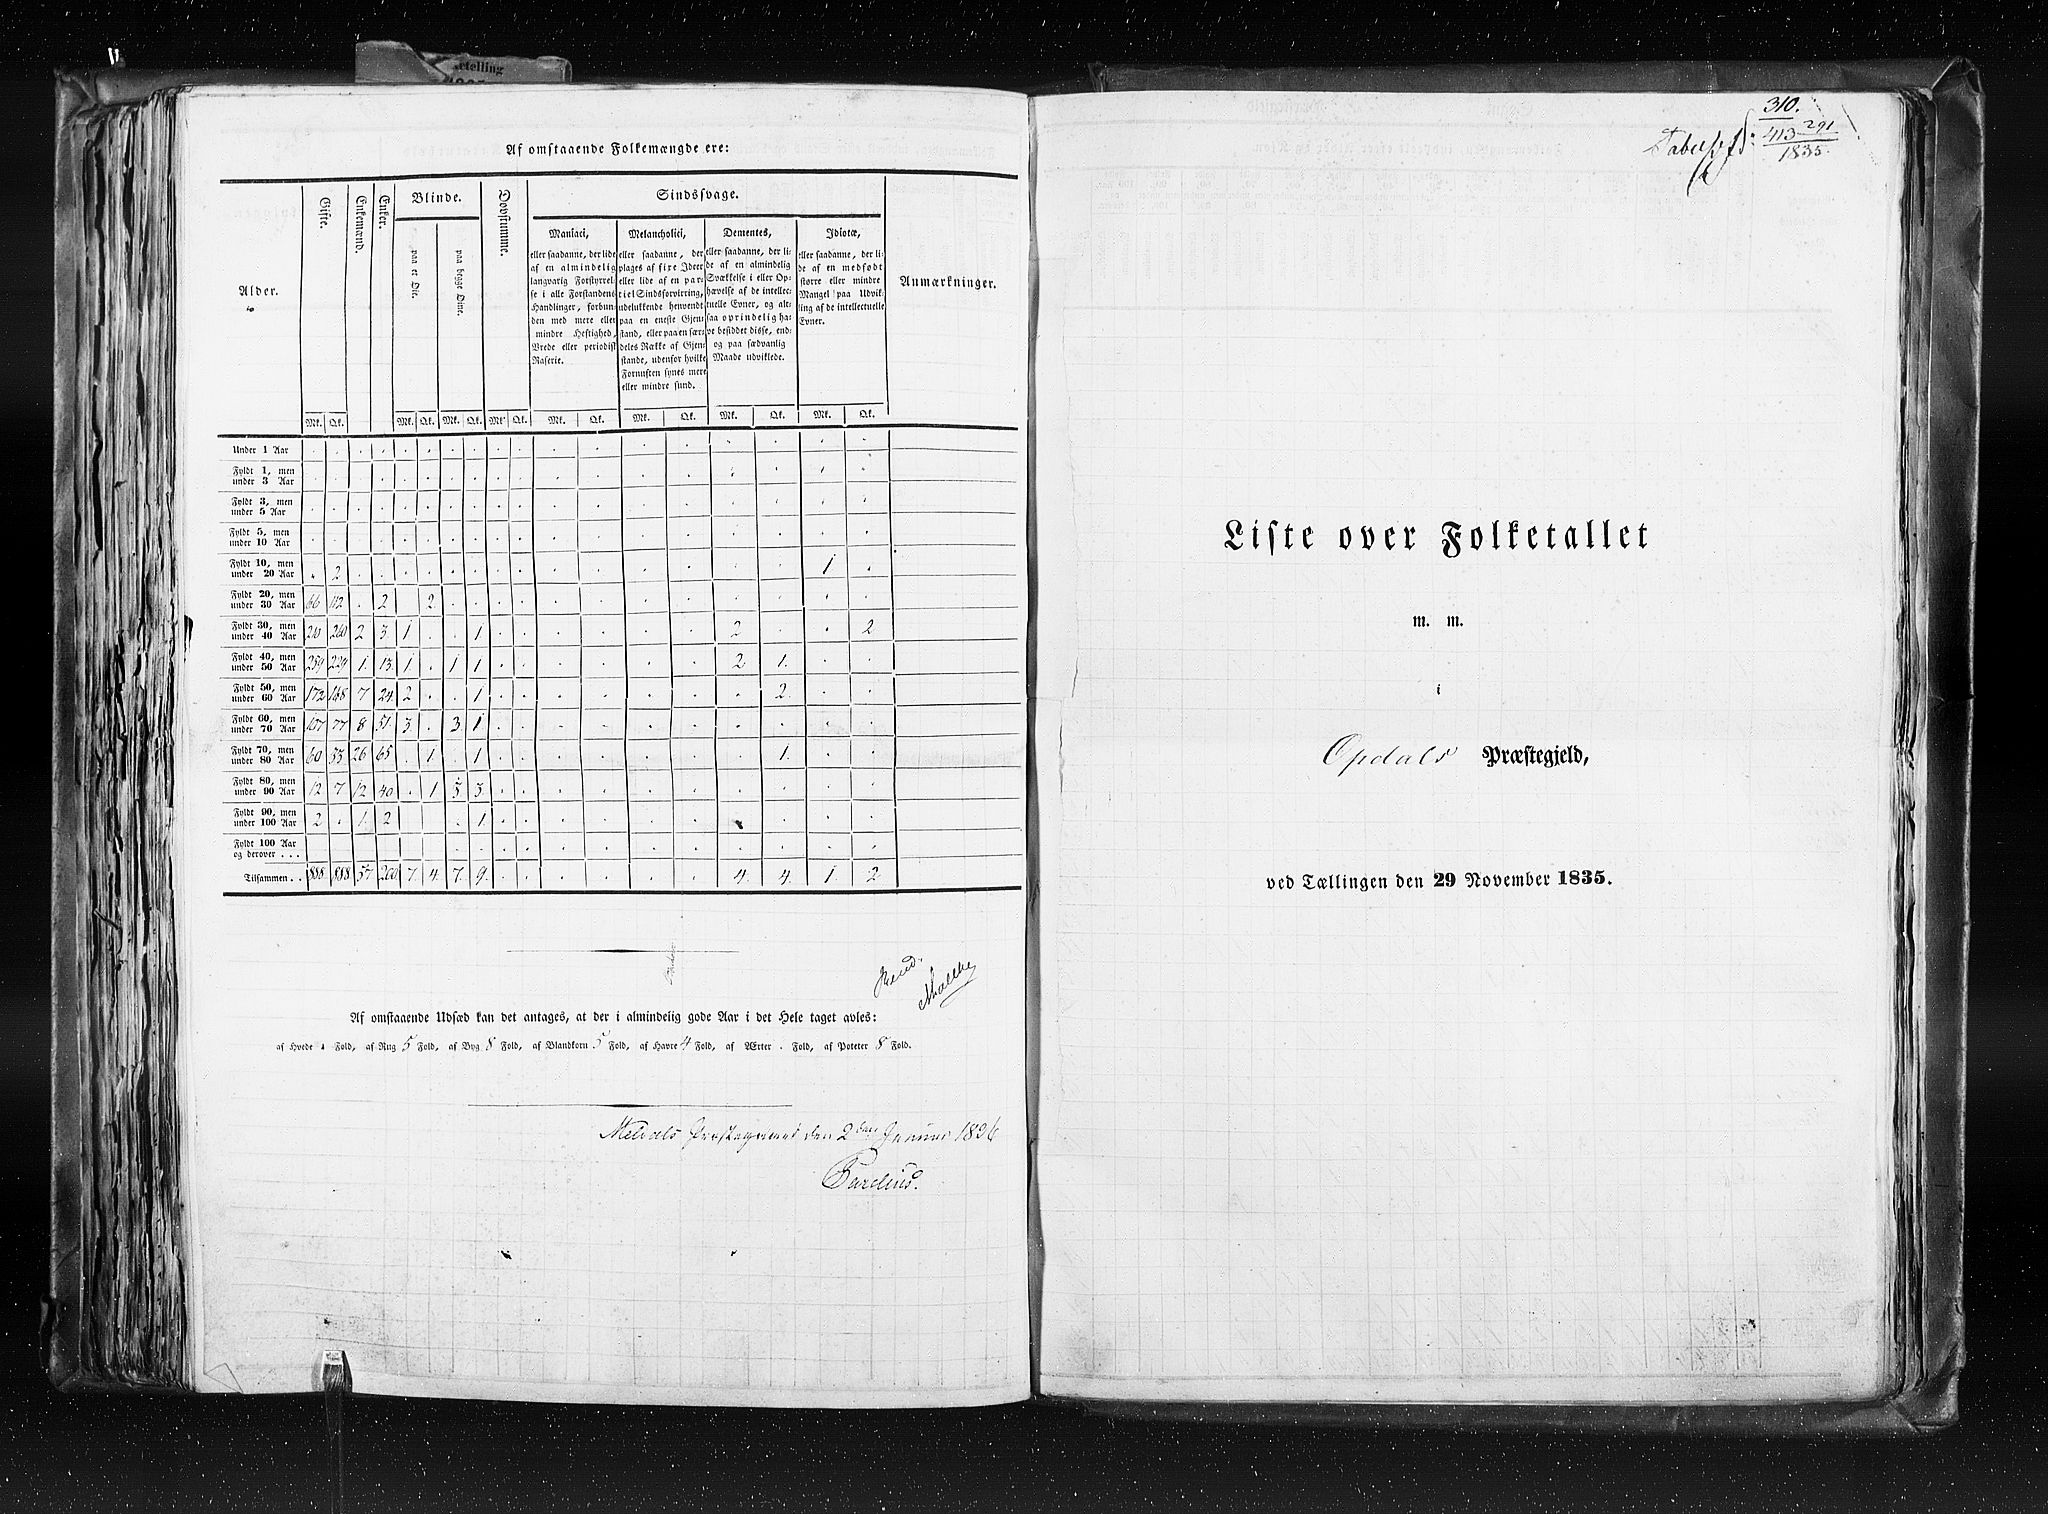 rtelling
Af omstaaende Folkemængde ere:
Alder. Gifte. Enkemænd. Enker. Blinde. Dovstumme. Sindssvage. Anmærkninger.
paa et Øie. paa begge Øine.
Maniaci,
eller saadanne, der lide
af en almindelig
langvarig Forstyrrel-
se i alle Forstandens
Handlinger, forbun-
den med mere eller
mindre Heftighed,
Vrede eller periodisk
Raserie.
Melancholici,
eller saadanne, der
plages af fixe Ideer
eller lide af en par-
tiel Sindsforvirring,
udelukkende henvendt
paa en eneste Gjen-
stand, eller paa en sær-
deles Række af Gjen-
stande, udenfor hvilke
Fornuften synes mere
eller mindre sund.
Dementes,
eller saadanne, der li-
de af en almindelig
Svækkelse i eller Op-
hævelse af de intellec-
tuelle Evner, og alt-
saa oprindelig ha-
ve besiddet disse, end-
og paa sædvanlig
Maade udviklede.
Idiotæ,
eller saadanne, der li-
de af en medfødt
større eller mindre
Mangel paa Udvik-
ling af de intellectuelle
Evner.
Mk. Qk. Mk. Qk. Mk. Qk. Mk. Qk. Mk. Qk. Mk. Qk. Mk. Qk. Mk. Qk.
Under 1 Aar
Fyldt 1, men
under 3 Aar
Fyldt 3, men
under 5 Aar
Fyldt 5, men
under 10 Aar
Fyldt 10, men
under 20 Aar . 2 . . . . . . . . . . . . . . . . 1 .
Fyldt 20, men
under 30 Aar 66 112 . 2 2
Fyldt 30, men
under 40 Aar 210 260 2 3 1 . . 1 2 . . 2
Fyldt 40, men
under 50 Aar 259 229 1. 13. 1 . 1 1 2 1. . .
Fyldt 50, men
under 60 Aar 172 168 7 24 2 . . 1 2. . .
Fyldt 60, men
under 70 Aar 107 77 8 51. 3. . 3. 1
Fyldt 70, men
under 80 Aar 60 33 26 65 . 1. . 1 1. . .
Fyldt 80, men
under 90 Aar 12 7 12 40 . 1 3 3.
Fyldt 90, men
under 100 Aar 2 . 1. 2 . 1.
Fyldt 100 Aar
og derover . . .
Tilsammen . . 888 888 57 200 7. 4. 7. 9. 4. 4. 1. 2.
Af omstaaende Udsæd kan det antages, at der i almindelig gode Aar i det Hele taget avles:
af Hvede . Fold, af Rug 5 Fold, af Byg 8 Fold, af Blandkorn 5 Fold, af Havre 4 Fold, af Ærter . Fold, af Poteter 8 Fold.
Meldals Præstegaard den 2den Januar 1836
310.
413 291
1835.
Liste over Folketallet
m. m.
i
Opdals Præstegjeld,
ved Tællingen den 29 November 1835.